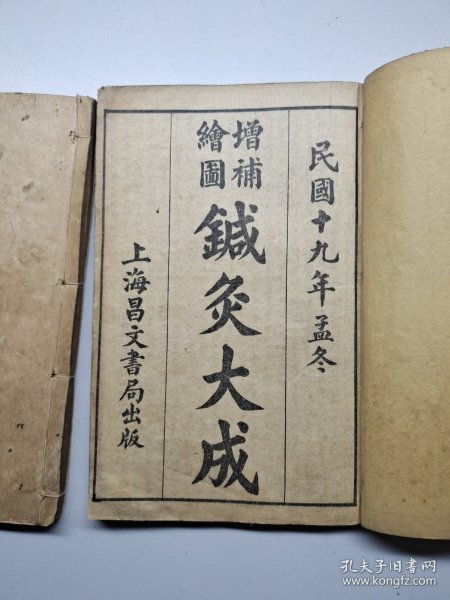 民國十九年孟冬
增補
繪圖
鍼灸大成
上海昌文書局出版
孔夫子旧书网
www.kongfz.com